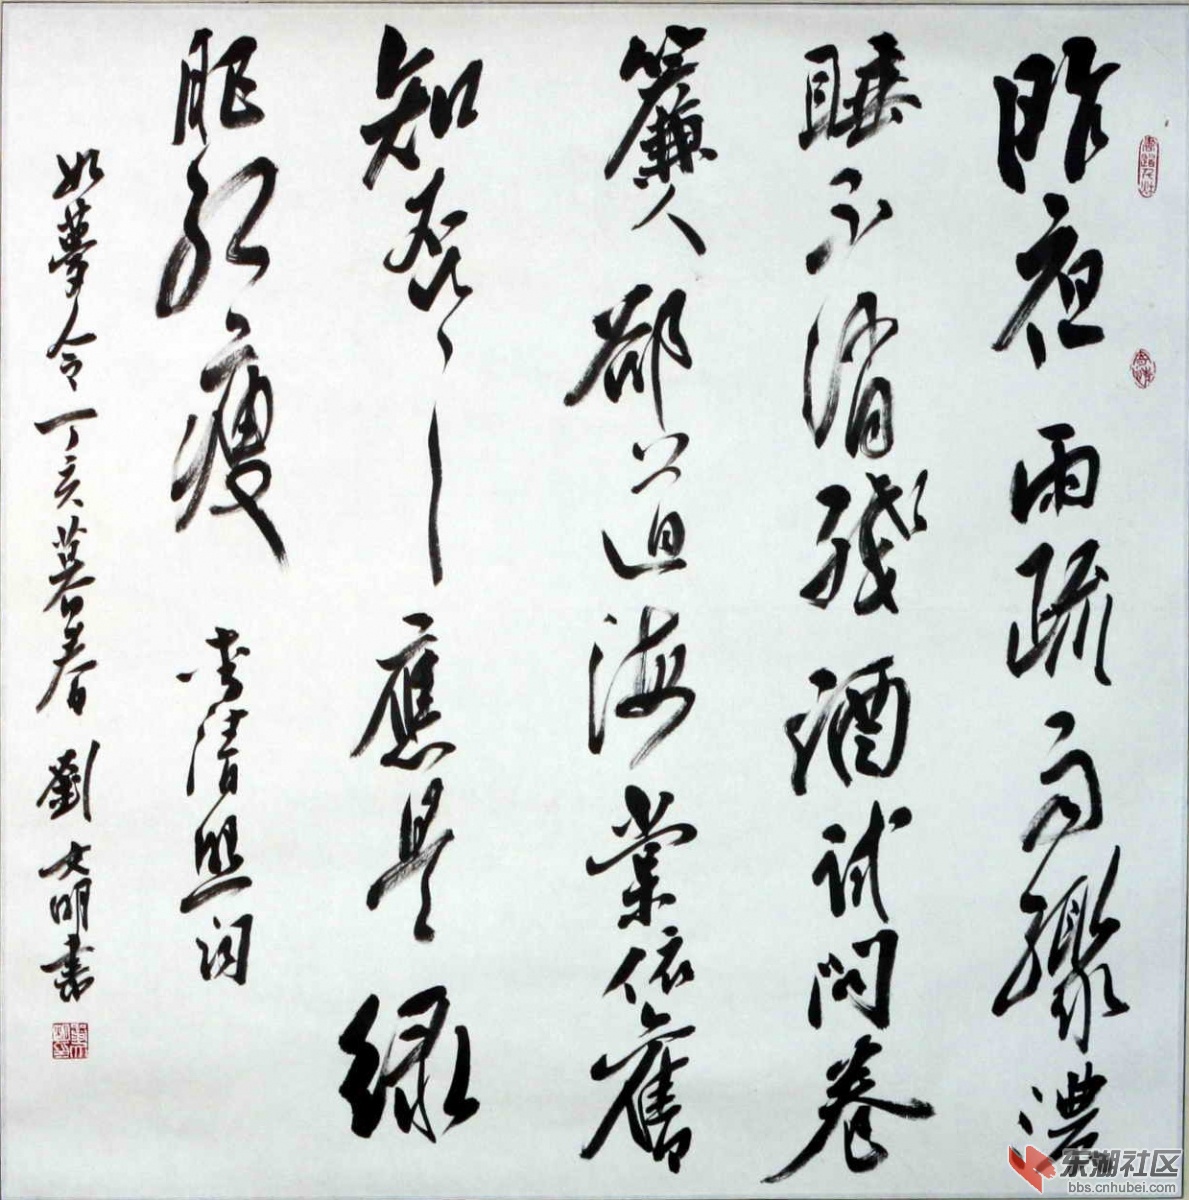 昨夜雨疏風驟濃
睡不消殘酒試問卷
簾人卻道海棠依舊
知否〻〻應是緑
肥紅瘦 李清照詞
如夢令丁亥暮春 劉文明書
东湖社区
bbs.cnhubei.com